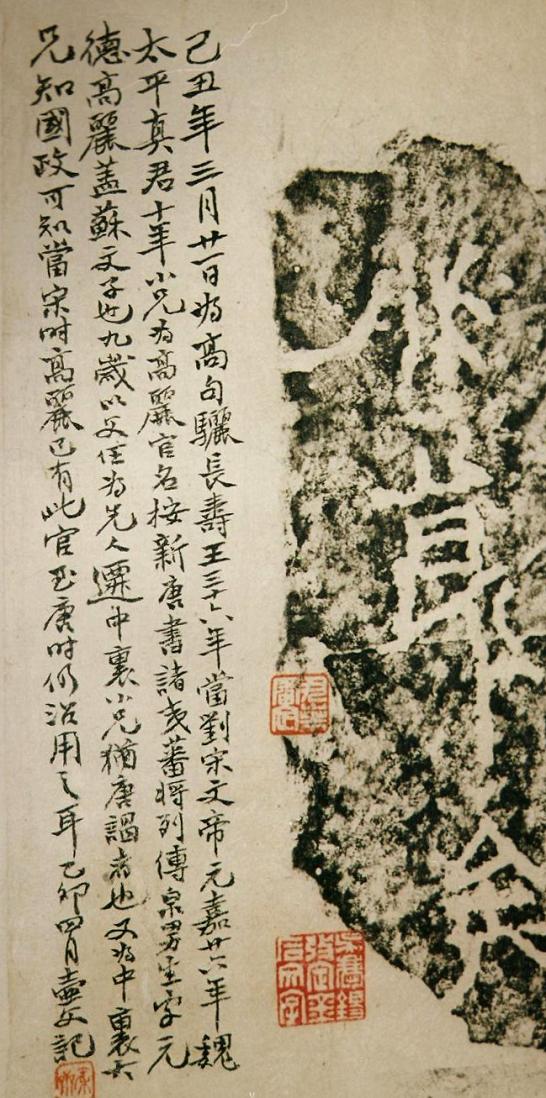 己丑年三月廿一日為高句驪長壽王三十六年當劉宋文帝元嘉廿六年魏
太平真君十年小兄為高麗官名按新唐書諸夷蕃將列傳泉男生字元
德高麗蓋蘇文子也九歲以父任為先人遷中裏小兄猶唐謁者也又為中裏大
兄知國政可知當宋時高麗已有此官至唐時仍沿用之耳乙卯四月壺父記